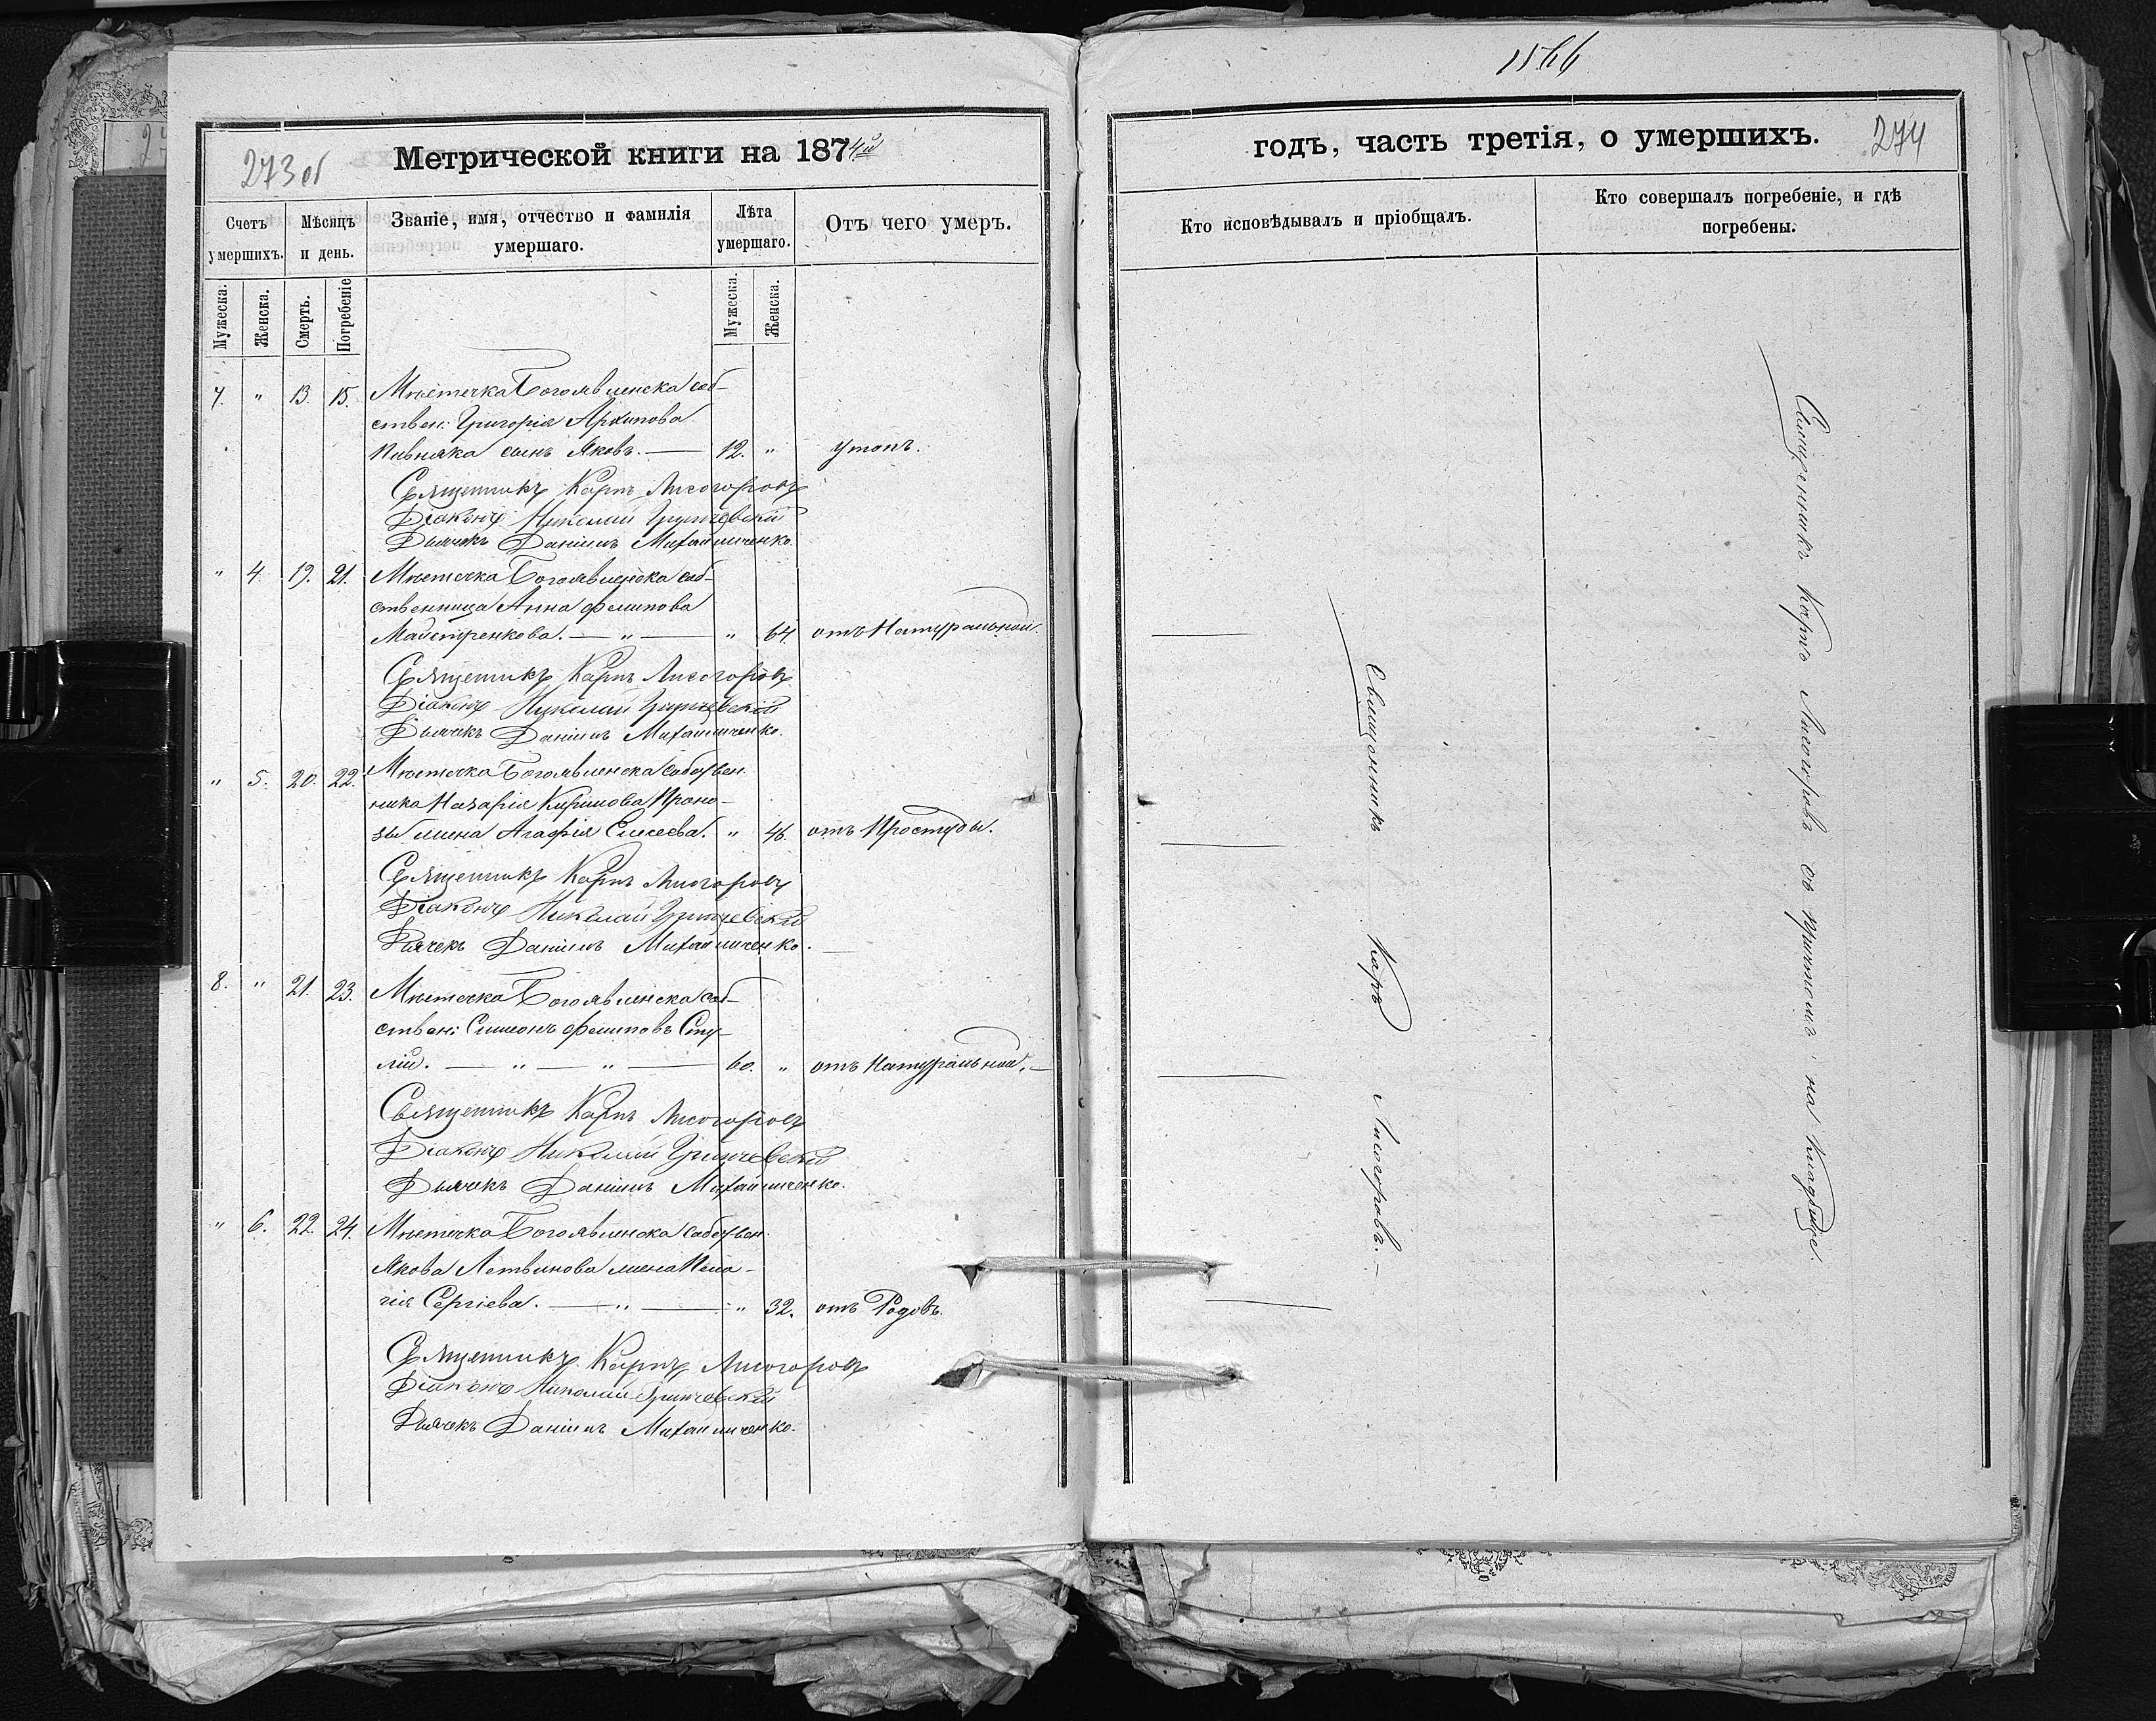 273 об
Метрической книги на 1874й
Счетъ умершихъ.
Мѣсяцъ и день.
Званіе, имя, отчество и фамилія умершаго.
Лѣта умершаго.
Отъ чего умеръ.
Мужеска.
Женска.
Смерть.
Погребеніе
Мужеска.
Женска.
7. " 13. 15. Мѣстечка Богоявленска соб-
ствен: Григорія Архипова
Пивняка сынъ Яковъ. — 12. " утопъ.
Священникъ Карпъ Лисогоровъ
Діаконъ Николай Гринчевскій
Дьячекъ Даніилъ Михайличенко.
" 4. 19. 21. Мѣстечка Богоявленска соб-
ственница Анна Филипова
Майстренкова. — " — " 64. отъ Натуральной.
Священникъ Карпъ Лисогоровъ
Діаконъ Николай Гринчевскій
Дьячекъ Даніилъ Михайличенко.
" 5. 20. 22. Мѣстечка Богоявленска собствен.
ника Назарія Кирилова Проно-
зы жена Агафія Елисеева. " 46. отъ Простуды.
Священникъ Карпъ Лисогоровъ
Діаконъ Николай Гринчевскій
Дьячекъ Даніилъ Михайличенко.
8. " 21. 23. Мѣстечка Богоявленска соб-
ствен: Симеонъ Филиповъ Сту-
лій. — " — " — 60. " отъ Натуральной. —
Священникъ Карпъ Лисогоровъ
Діаконъ Николай Гринчевскій
Дьячекъ Даніилъ Михайличенко.
" 6. 22. 24. Мѣстечка Богоявленска собствен.
Якова Летвинова жена Пела-
гія Сергіева. — " — " 32. отъ Родовъ.
Священникъ Карпъ Лисогоровъ
Діаконъ Николай Гринчевскій
Дьячекъ Даніилъ Михайличенко.
1566
годъ, часть третія, о умершихъ.
274
Кто исповѣдывалъ и пріобщалъ.
Кто совершалъ погребеніе, и гдѣ
погребены.
Священникъ Карпъ Лисогоровъ. —
Священникъ Карпъ Лисогоровъ съ причтомъ на кладбищѣ.